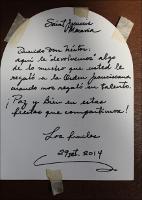 Querido Don Néstor:
aquí le devolvemos algo
de lo mucho que usted le
regaló a la Orden franciscana
cuando nos regaló su talento.
¡Paz y Bien en estas
fiestas que compartimos!
Los frailes
29 set. 2014